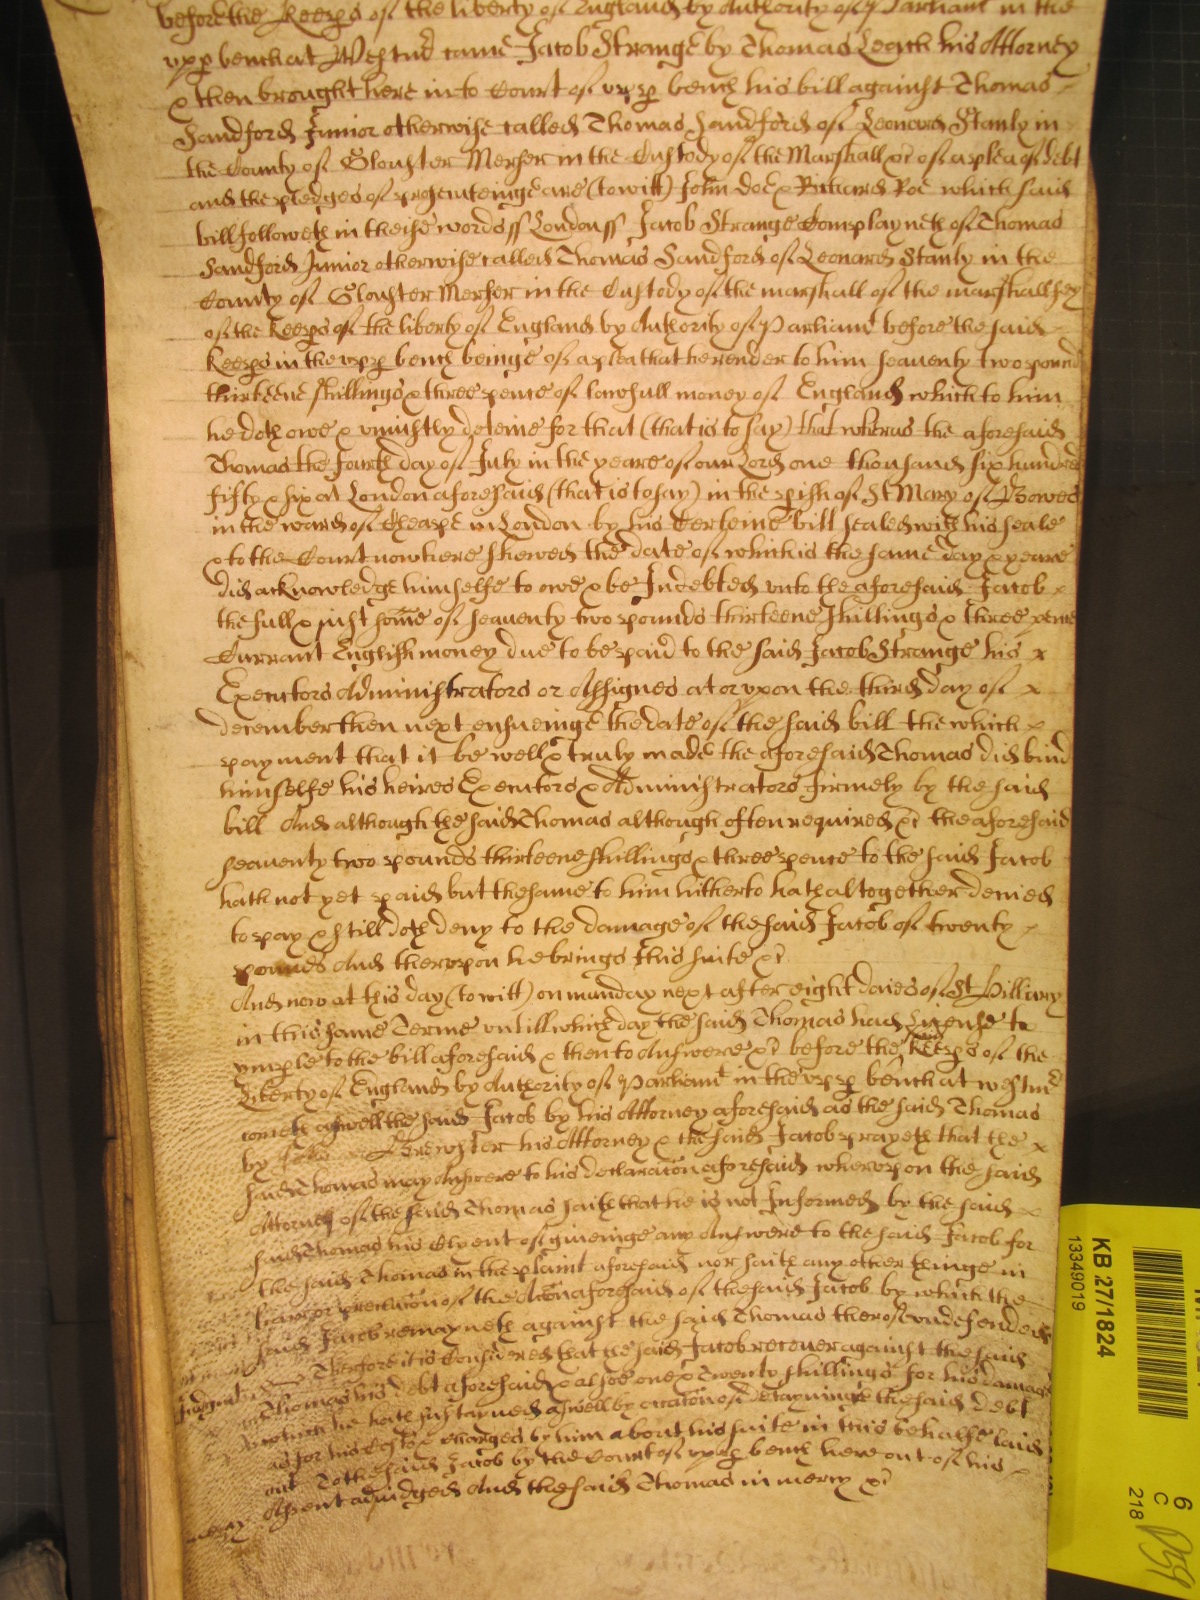 before the Keeps of the liberty of England by Authority of Parliamt in the
upp bench at Westmr came Jacob Strange by Thomas Leach his Attorney
& then brought here into Court of upp bench his bill against Thomas
Sandford Junior otherwise called Thomas Sandford of Leonard Stanly in
the County of Gloster Merser in the Custody of the Marshall &c of a plea of debt
and the pledges of prosecuteinge are (to witt) John Doe & Richard Roe which said
bill followeth in theise words ss London ss Jacob Strange Complayneth of Thomas
Sandford Junior otherwise called Thomas Sandford of Leonard Stanly in the
County of Gloster Merser in the Custody of the marshall of the marshallsey
of the Keeps of the liberty of England by Authority of Parliamt before the said
Keeps in the upp bench beinge of a plea that he render to him seaventy two pound
thirteene shillings & three pence of lawfull money of England which to him
he doth owe & uniustly deteine for that (that is to say) that wheras the aforesaid
Thomas the fourth day of July in the yeare of our Lord one thousand six hundred
fifty & six at London aforesaid (that is to say) in the pish of St Mary of Bowes
in the ward of Cheape in London by his Certeine bill sealed with his seale
& to the Court now here shewed the date of which is the same day & yeare
did acknowledge himselfe to owe & be Indebted unto the aforesaid Jacob
the full & just some of seaventy two pounds thirteene shillings & three pence
Currant English money due to be paid to the said Jacob Strange his
Executors Administrators or Assignes at or upon the third day of
december then next ensueinge the date of the said bill the which
payment that it be well & truly made the aforesaid Thomas did bind
himselfe his heires Executors & Administrators firmely by the said
bill And although the said Thomas although often required &c the aforesaid
seaventy two pounds thirteene shillings & three pence to the said Jacob
hath not yet paid but the same to him hitherto hath altogether denied
to pay & still doth deny to the damage of the said Jacob of twenty
pounds And therupon he brings this suite &c
And now at this day (to witt) on munday next after eight daies of St Hillary
in this same Terme untill which day the said Thomas had License to
imple to the bill aforesaid & then to Answere &c before the said Keeps of the
Liberty of England by Authority of Parliamt in the upp bench at westmr
cometh aswell the said Jacob by his Attorney aforesaid as the said Thomas
by Brewster his Attorney & the said Jacob prayeth that the
said Thomas may Answere to his declaracon aforesaid wherupon the said
Attorney of the said Thomas saith that he is not Informed by the said
said Thomas his Clyent of giveinge any Answere to the said Jacob for
the said Thomas in the plaint aforesaid nor saith any other thinge in
barr or preclucon of the Accon aforesaid of the said Jacob by which the
said Jacob remayneth against the said Thomas therof undefended
Therfore it is Considered that the said Jacob recover against the said
Judgmt Thomas his debt aforesaid & alsoe one & twenty shillings for his damages
which he hath sustayned aswell by occacon of detayninge the said debt
as for his Costs & charges by him about his suite in this behalfe laid
out To the said Jacob by the Court of upp bench here out of his
mercy Assent adjudged And the said Thomas in mercy &c
KB 27/1824
13349019
6
C
218